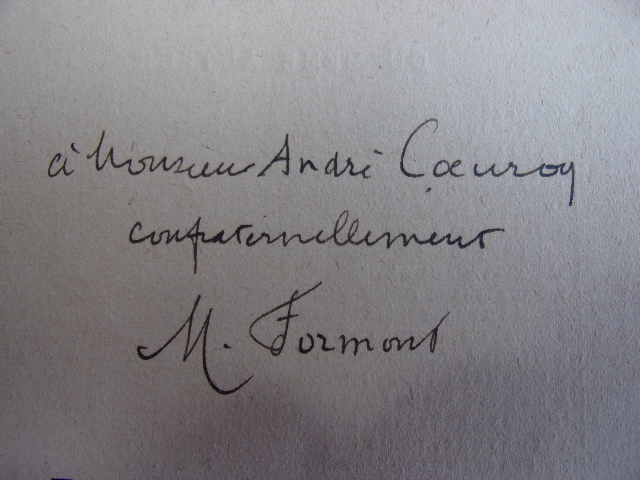 à Monsieur André Cœuroy
confraternellement
M. Formont